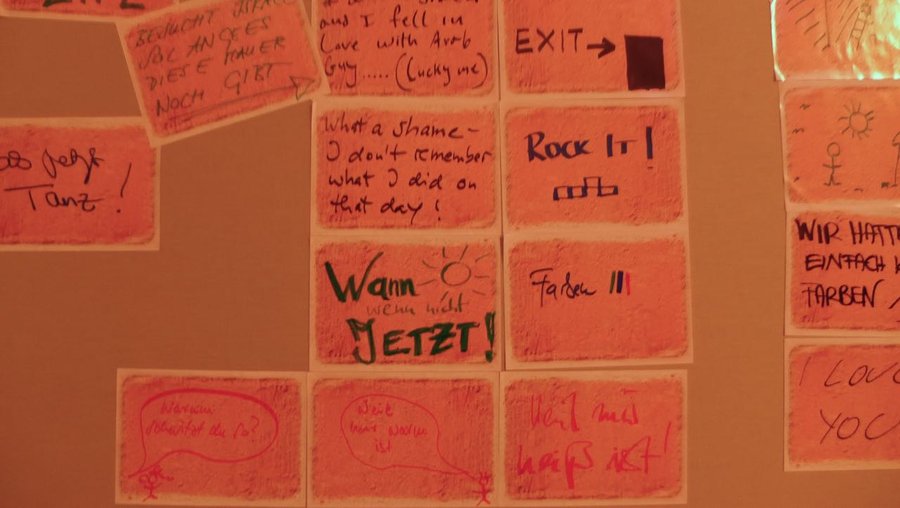 BESUCHT
SOLANGE ES
DIESE MAUER
NOCH GIBT
and I fell in
Love with Arab
Guy..... (Lucky me)
EXIT
Tanz!
What a shame-
I don't remember
what I did on
that day!
ROCK IT!
Wann
wenn nicht
JETZT!
Farben
WIR HATT
EINFACH K
FARBEN
I LOVE
YOU
Warum
schwitzt du so?
Weil
mir warm
ist
Weil mir
heiß ist!